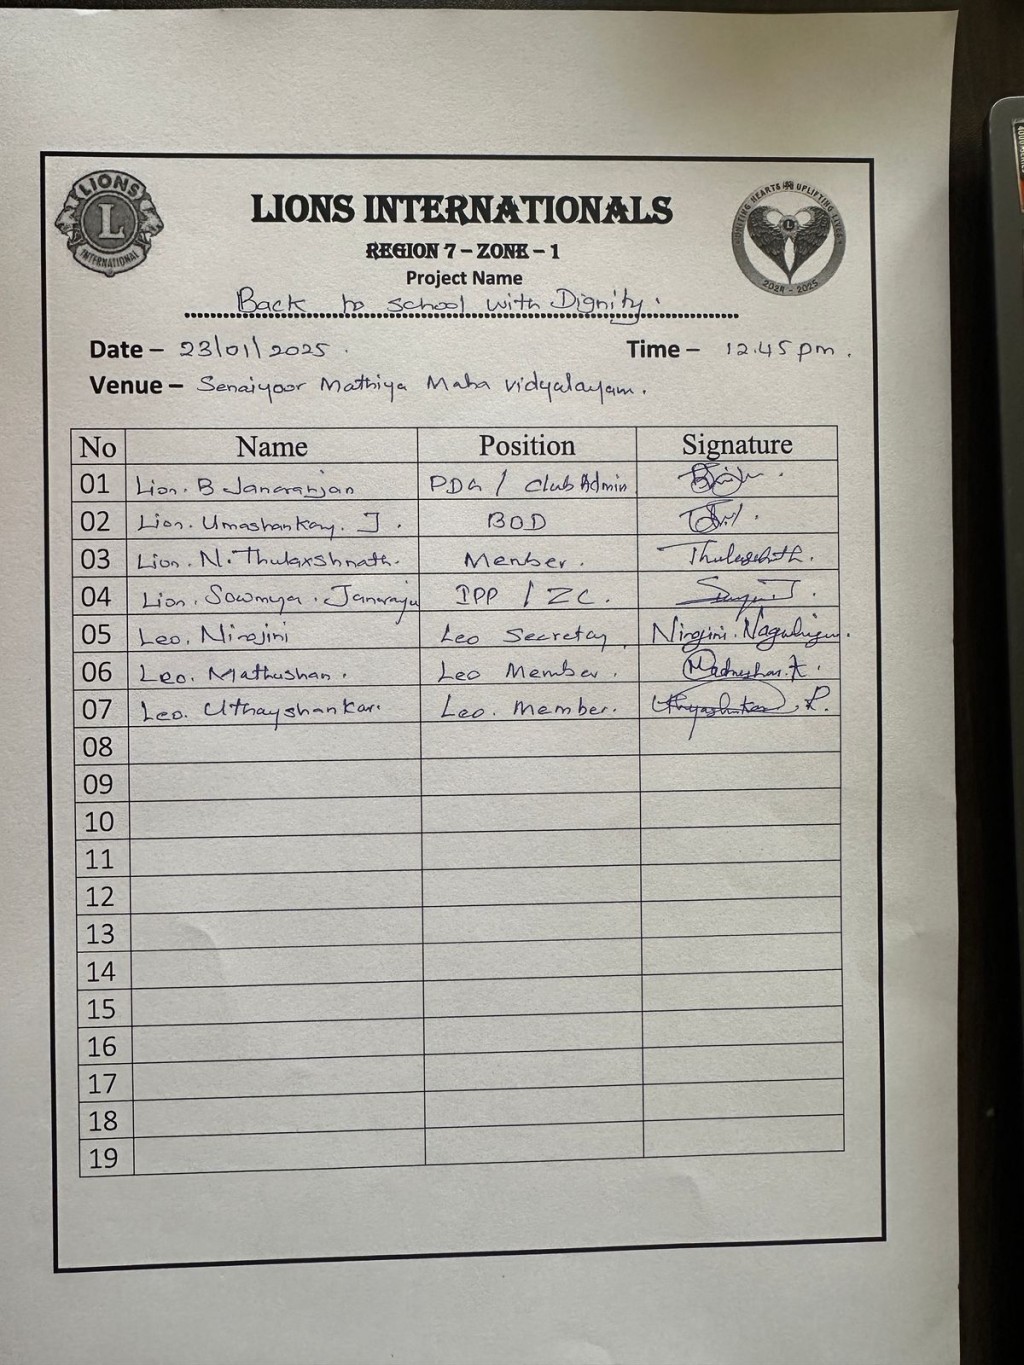 LIONS INTERNATIONAL
L
LIONS INTERNATIONALS
UNITING HEARTS UPLIFTING LIVES
2024 - 2025
REGION 7 – ZONE – 1
Project Name
Back to school with Dignity.
Date – 23/01/2025. Time – 12.45 pm.
Venue – Senaiyoor Mathiya Maha Vidyalayam.
No Name Position Signature
01 Lion. B Janaranjan PDG / Club Admin
02 Lion. Umashankar. J. BOD
03 Lion. N. Thulaxshnath. Member.
04 Lion. Sowmya. Janaraju IPP / ZC.
05 Leo. Nirojini Leo Secretary Nirojini.
06 Leo. Mathushan. Leo Member.
07 Leo. Uthayshankar. Leo. Member.
08
09
10
11
12
13
14
15
16
17
18
19